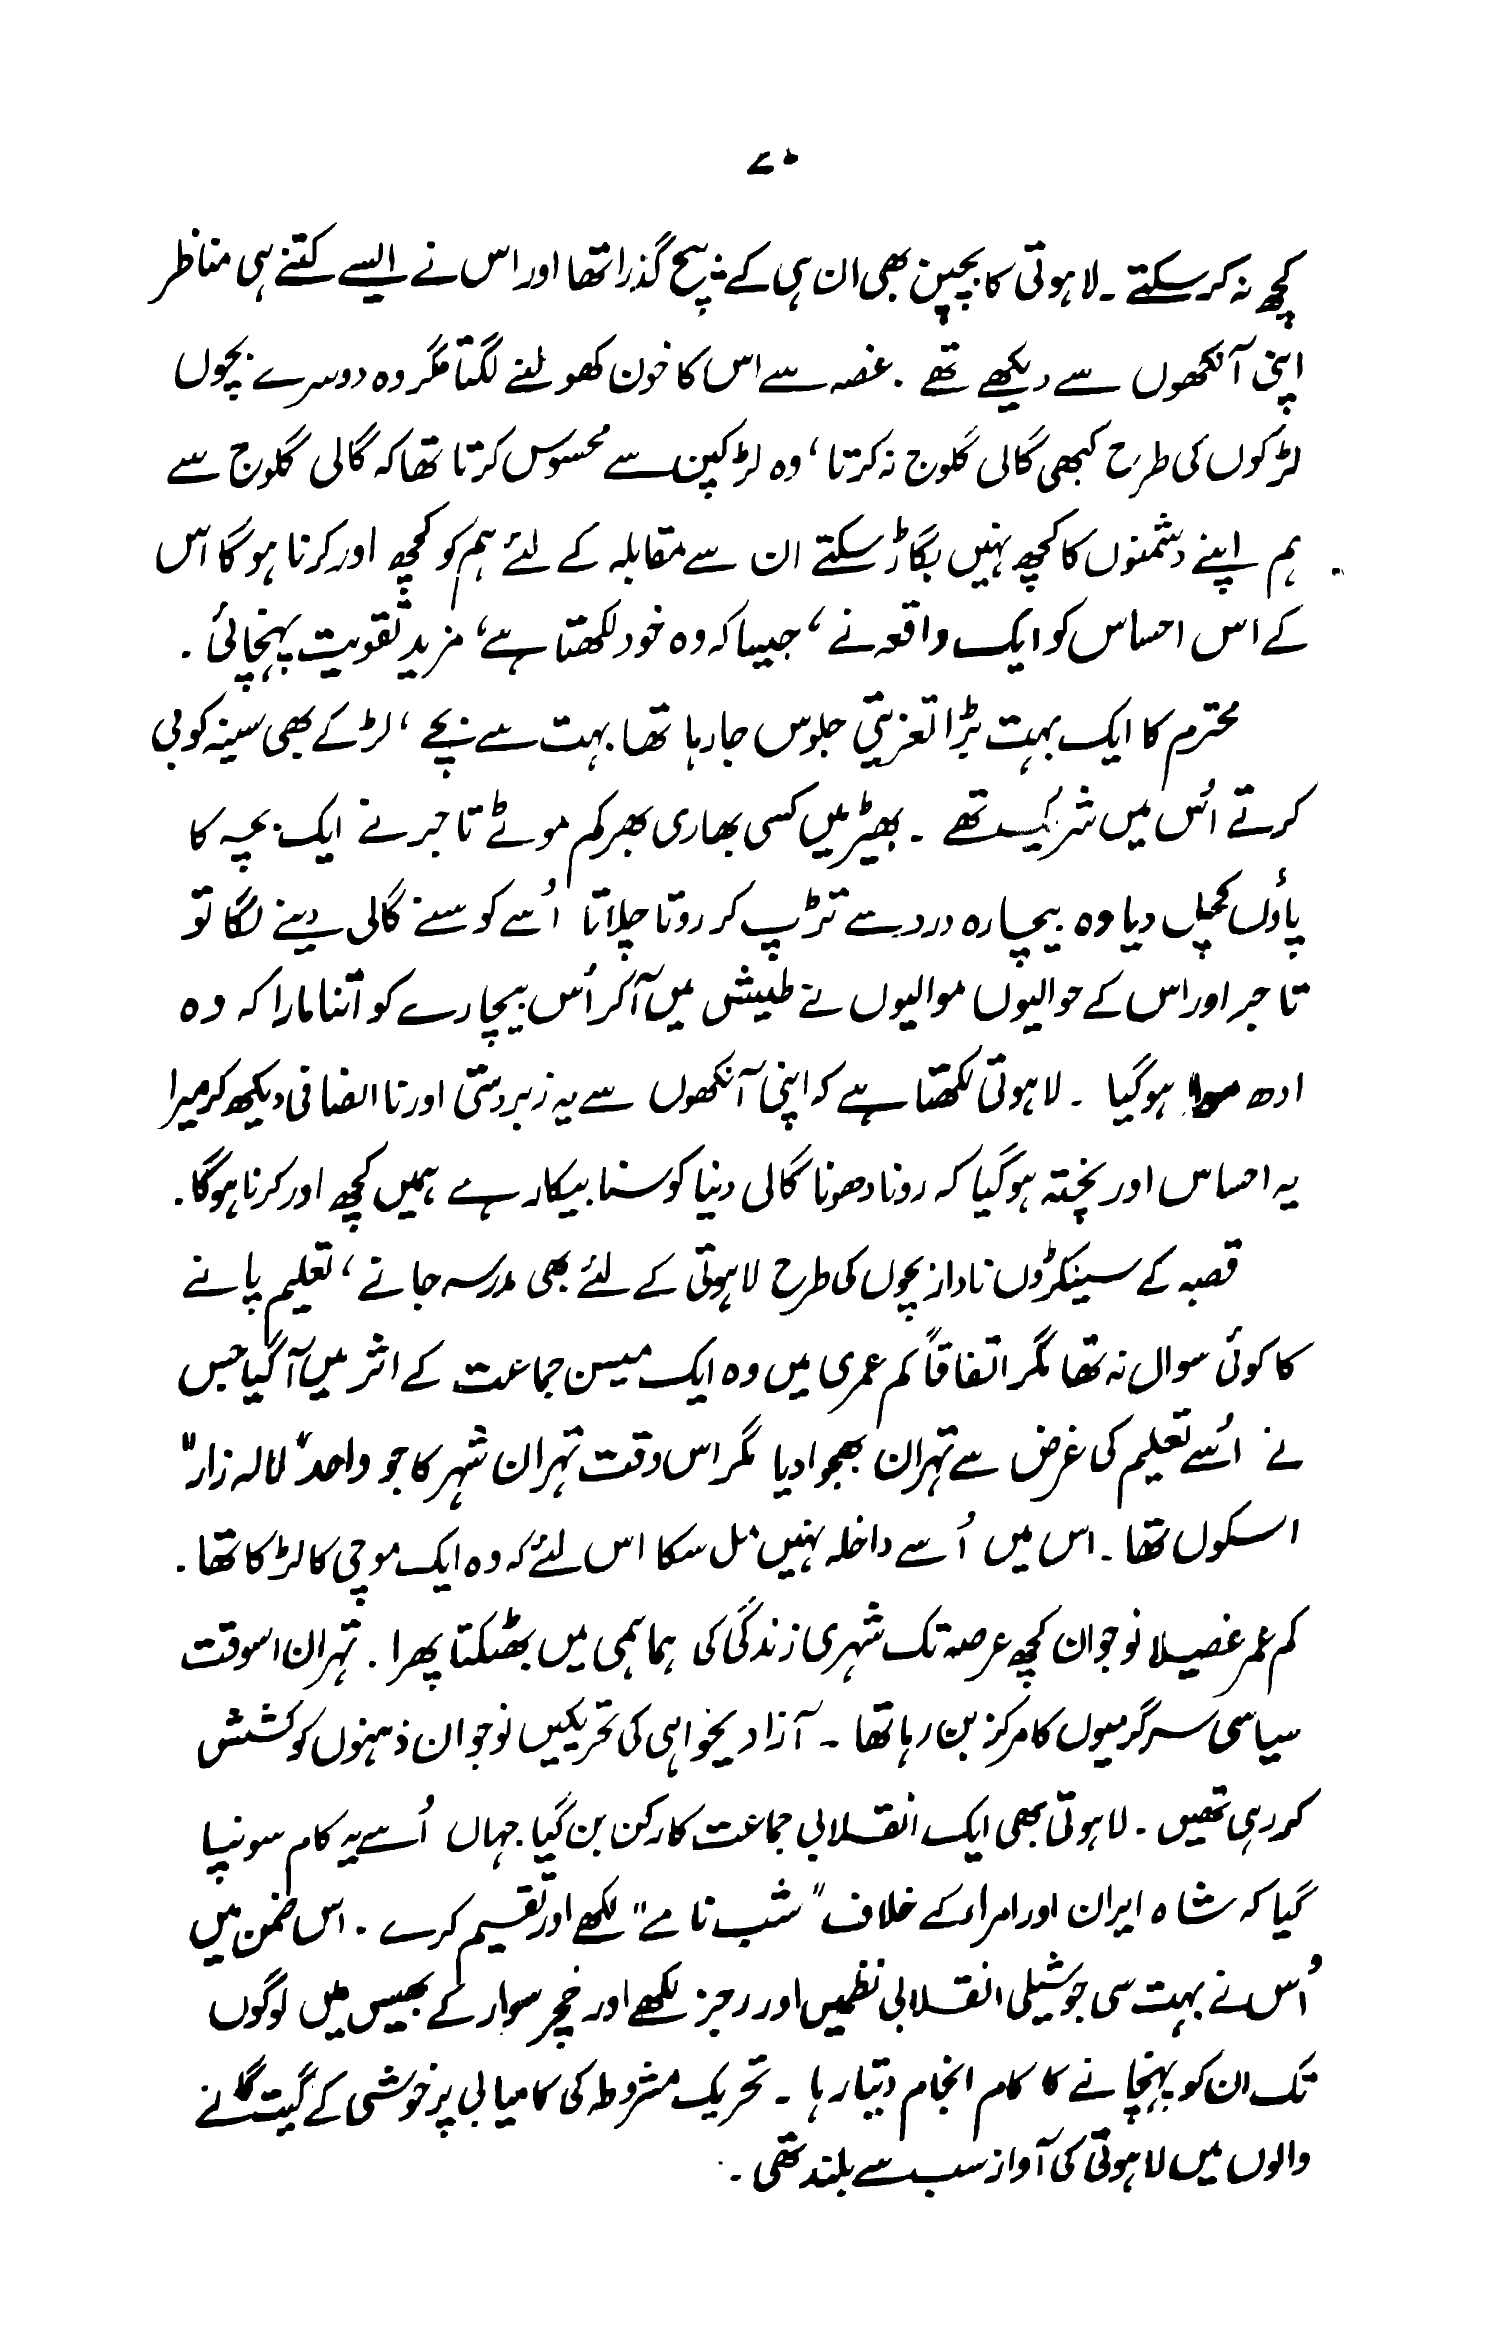 کچھ نہ کر سکتے ۔ لاہوتی کا بچپن بھی ان ہی کے بیچ گذرا تھا اور اس نے ایسے کتنے ہی مناظر
اپنی آنکھوں سے دیکھے تھے ۔ غصہ سے اس کا خون کھولنے لگتا مگر وہ دوسرے بچوں
لڑکوں کی طرح کبھی گالی گلوج نہ کرتا ، وہ لڑکپن سے محسوس کرتا تھا کہ گالی گلوج سے
ہم اپنے دشمنوں کا کچھ نہیں بگاڑ سکتے ان سے مقابلہ کے لئے ہم کو کچھ اور کرنا ہوگا اس
کے اس احساس کو ایک واقعہ نے ، جیسا کہ وہ خود لکھتا ہے ، مزید تقویت پہنچائی ۔
محترم کا ایک بہت بڑا تعزیتی جلوس جا رہا تھا بہت سے بچے ، لڑکے بھی سینہ کوبی
کرتے اُس میں شریک تھے ۔ بھیڑ میں کسی بھاری بھرکم موٹے تاجر نے ایک بچہ کا
پاؤں کچل دیا وہ بیچارہ درد سے تڑپ کر روتا چلاتا اُسے کوسنے گالی دینے لگا تو
تاجر اور اس کے حوالیوں موالیوں نے طیش میں آکر اُس بیچارے کو اتنا مارا کہ وہ
ادھ موا ہو گیا ۔ لاہوتی لکھتا ہے کہ اپنی آنکھوں سے یہ زبردستی اور نا انصافی دیکھ کر میرا
یہ احساس اور پختہ ہو گیا کہ رونا دھونا گالی دینا کوسنا بیکار ہے ہمیں کچھ اور کرنا ہوگا ۔
قصبہ کے سینکڑوں نادار بچوں کی طرح لاہوتی کے لئے بھی مدرسہ جانے ، تعلیم پانے
کا کوئی سوال نہ تھا مگر اتفاقاً کم عمری میں وہ ایک میسن جماعت کے اثر میں آگیا جس
نے اُسے تعلیم کی غرض سے تہران بھجوا دیا مگر اس وقت تہران شہر کا جو واحد "لالہ زار"
اسکول تھا ۔ اس میں اُسے داخلہ نہیں مل سکا اس لئے کہ وہ ایک موچی کا لڑکا تھا ۔
کم عمر غصیلا نوجوان کچھ عرصہ تک شہری زندگی کی ہماہمی میں بھٹکتا پھرا ۔ تہران اسوقت
سیاسی سرگرمیوں کا مرکز بن رہا تھا ۔ آزادیخواہی کی تحریکیں نوجوان ذہنوں کو کشش
کر رہی تھیں ۔ لاہوتی بھی ایک انقلابی جماعت کا رکن بن گیا ۔ جہاں اُسے یہ کام سونپا
گیا کہ شاہ ایران اور امراء کے خلاف "شب نامے" لکھے اور تقسیم کرے ۔ اس ضمن میں
اُس نے بہت سی جوشیلی انقلابی نظمیں اور رجز لکھے اور خچر سوار کے بھیس میں لوگوں
تک ان کو پہنچانے کا کام انجام دیتا رہا ۔ تحریک مشروطہ کی کامیابی پر خوشی کے گیت گانے
والوں میں لاہوتی کی آواز سب سے بلند تھی ۔